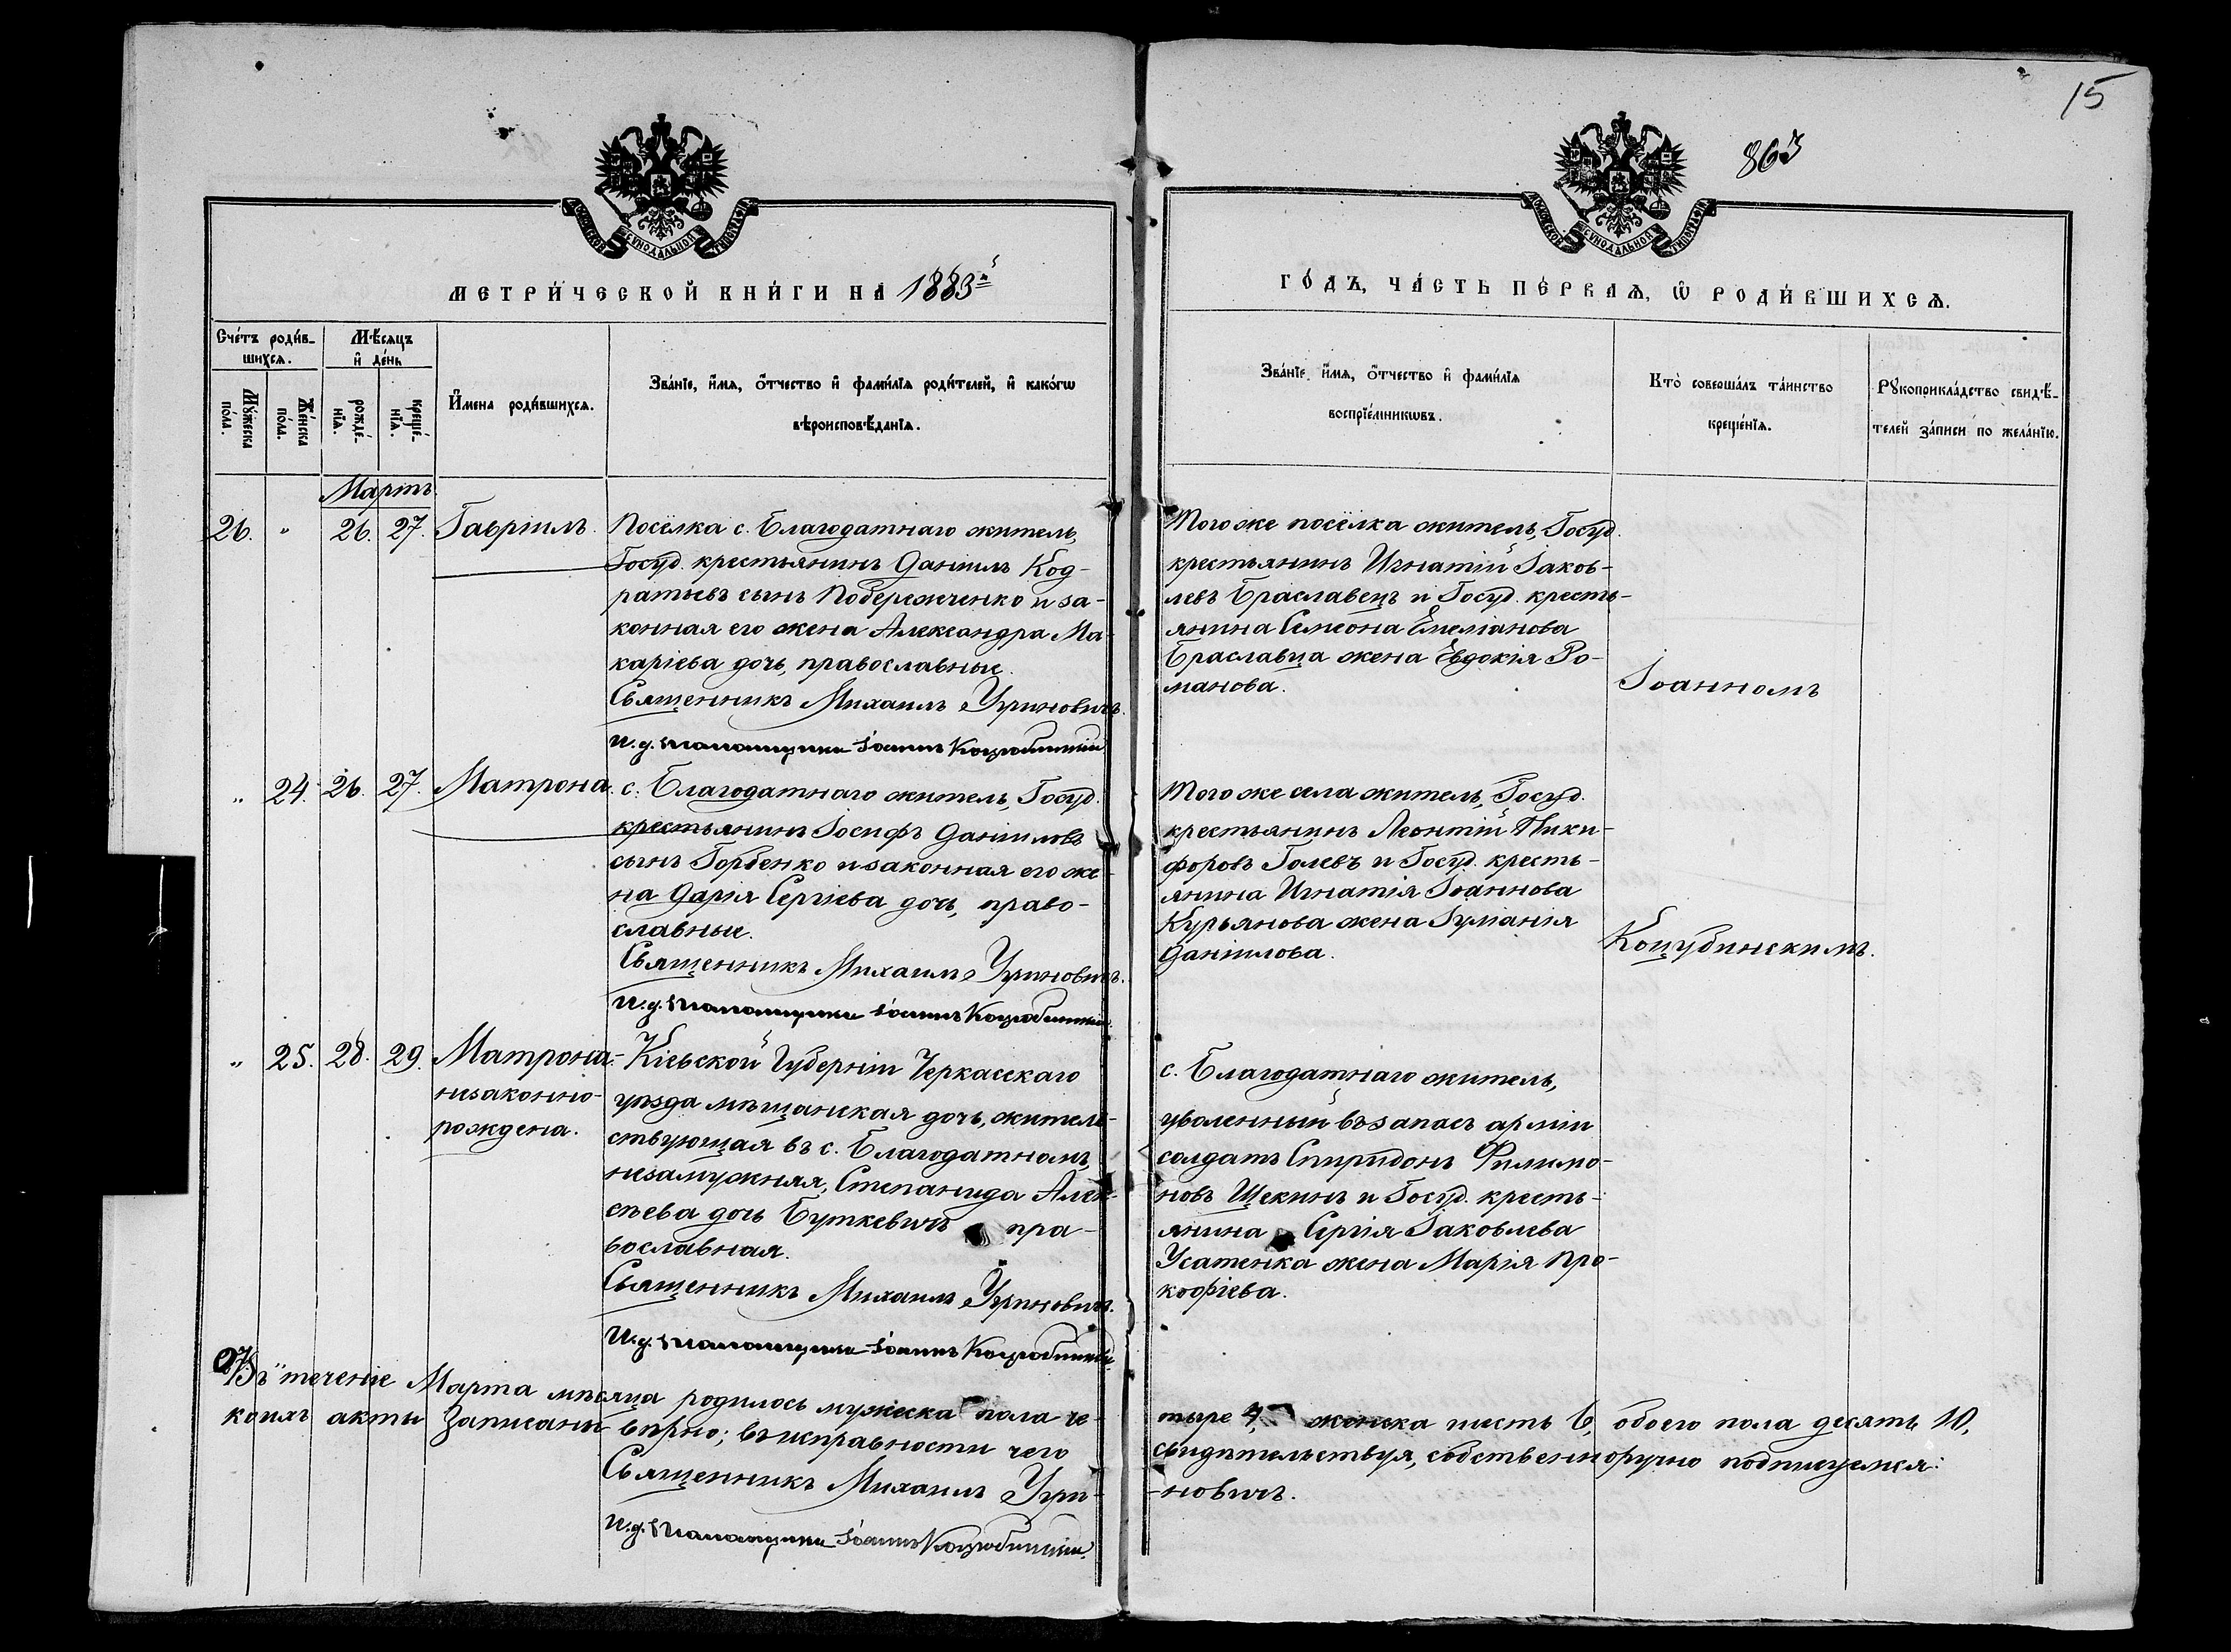 15
863
МОСКОВСКОЙ СѴНОДАЛЬНОЙ ТИПОГРАФІИ
МОСКОВСКОЙ СѴНОДАЛЬНОЙ ТИПОГРАФІИ
МЕТРИ́ЧЕСКОЙ КНИ́ГИ НА 1883й
ГО́ДЪ, ЧА́СТЬ ПЕ́РВАѦ, Ѡ҆ РОДИ́ВШИХСѦ.
Сче́тъ роди́в-
шихсѧ.
Мѣ́сѧцъ
и҆ де́нь
Мꙋ́жеска
по́ла.
Же́нска
по́ла.
рожде́-
нїѧ.
креще́-
нїѧ.
И҆мена роди́вшихсѧ.
Зва́нїе, и҆́мѧ, ѻ҆́тчество и҆ фами́лїѧ роди́телей, и҆ како́гѡ
вѣроисповѣ́данїѧ.
Зва́нїе, и҆́мѧ, ѻ҆́тчество и҆ фами́лїѧ
воспрїе́мникѡвъ.
Кто̀ соверша́лъ та́инство
креще́нїѧ.
Рꙋкоприкла́дство свидѣ́-
телей за́писи по жела́нїю.
Мартъ.
26. " 26. 27. Гавріилъ. Посёлка с. Благодатнаго житель,
Госуд. крестьянинъ Даніилъ Код-
ратьевъ сынъ Побережченко и за-
конная его жена Александра Ма-
каріева дочь, православные.
Священникъ Михаилъ Угриновичъ.
И. д. Псаломщика Іоаннъ Коцюбинскій
Того же посёлка житель, Госуд.
крестьянинъ Игнатій Іаков-
левъ Браславецъ и Госуд. кресть-
янина Симеона Емеліанова
Браславца жена Евдокія Ро-
манова.
Іоанномъ
" 24. 26. 27. Матрона. с. Благодатнаго житель, Госуд.
крестьянинъ Іосифъ Даніиловъ
сынъ Горбенко и законная его же-
на Дарія Сергіева дочь, право-
славные.
Священникъ Михаилъ Угриновичъ.
И. д. Псаломщика Іоаннъ Коцюбинскій.
Того же села житель, Госуд.
крестьянинъ Леонтій Ники-
форовъ Голевъ и Госуд. кресть-
янина Игнатія Іоаннова
Курьянова жена Іуліанія
Даніилова.
Коцубинскимъ.
" 25. 28. 29. Матрона- Кіевской Губерніи Черкасскаго
незаконно-
рождена.
уѣзда мѣщанская дочь, житель-
ствующая въ с. Благодатномъ,
незамужняя, Степанида Алек-
сѣева дочь Буткевичъ пра-
вославная.
Священникъ Михаилъ Угриновичъ.
И. д. Псаломщика Іоаннъ Коцюбинскій.
с. Благодатнаго житель,
уволенный въ запасъ арміи
солдатъ Спиридонъ Филимо-
новъ Щекинъ и Госуд. кресть-
янина Сергія Іаковлева
Усатенка жена Марія Про-
кофіева.
Въ теченіе Марта мѣсяца родилось мужеска пола че-
тыре 4, женска шесть 6, обоего пола десять 10,
коихъ акты записаны вѣрно; въ исправности чего
свидѣтельствуя, собственноручно подписуемся:
Священникъ Михаилъ Угри-
-новичъ.
И. д. Псаломщика Іоаннъ Коцюбинскій.